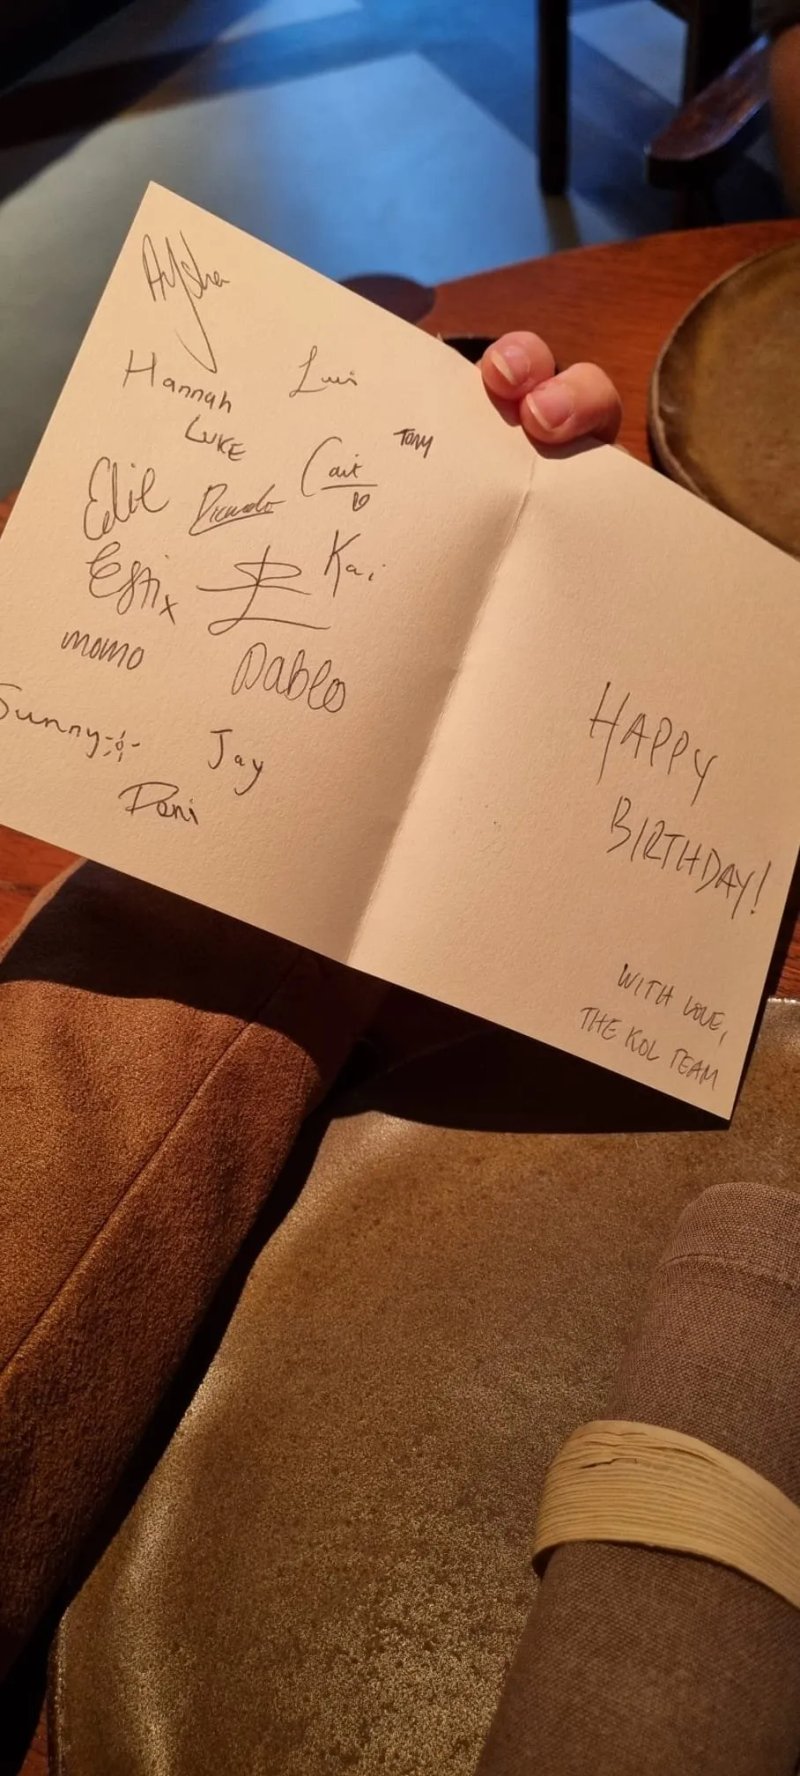 Aysha
Hannah
Luis
LUKE
Tony
Cait
Ricardo
Kai
momo
Pablo
Sunny
Jay
Dani
HAPPY
BIRTHDAY!
WITH LOVE,
THE KOL TEAM